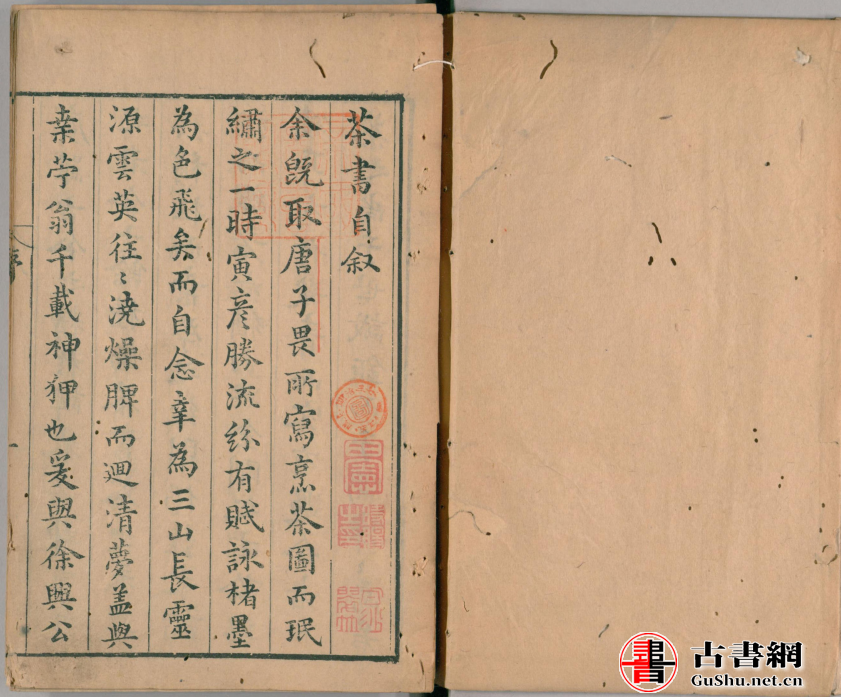 茶書自叙
余既取唐子畏所寫烹茶圖而珉
繡之一時寅彦勝流紛有賦詠楮墨
為色飛矣而自念幸為三山長靈
源雲英往〻澆燥脾而迴清夢盖與
桑苧翁千載神狎也爰與徐興公
序
一
古書網
GuShu.net.cn